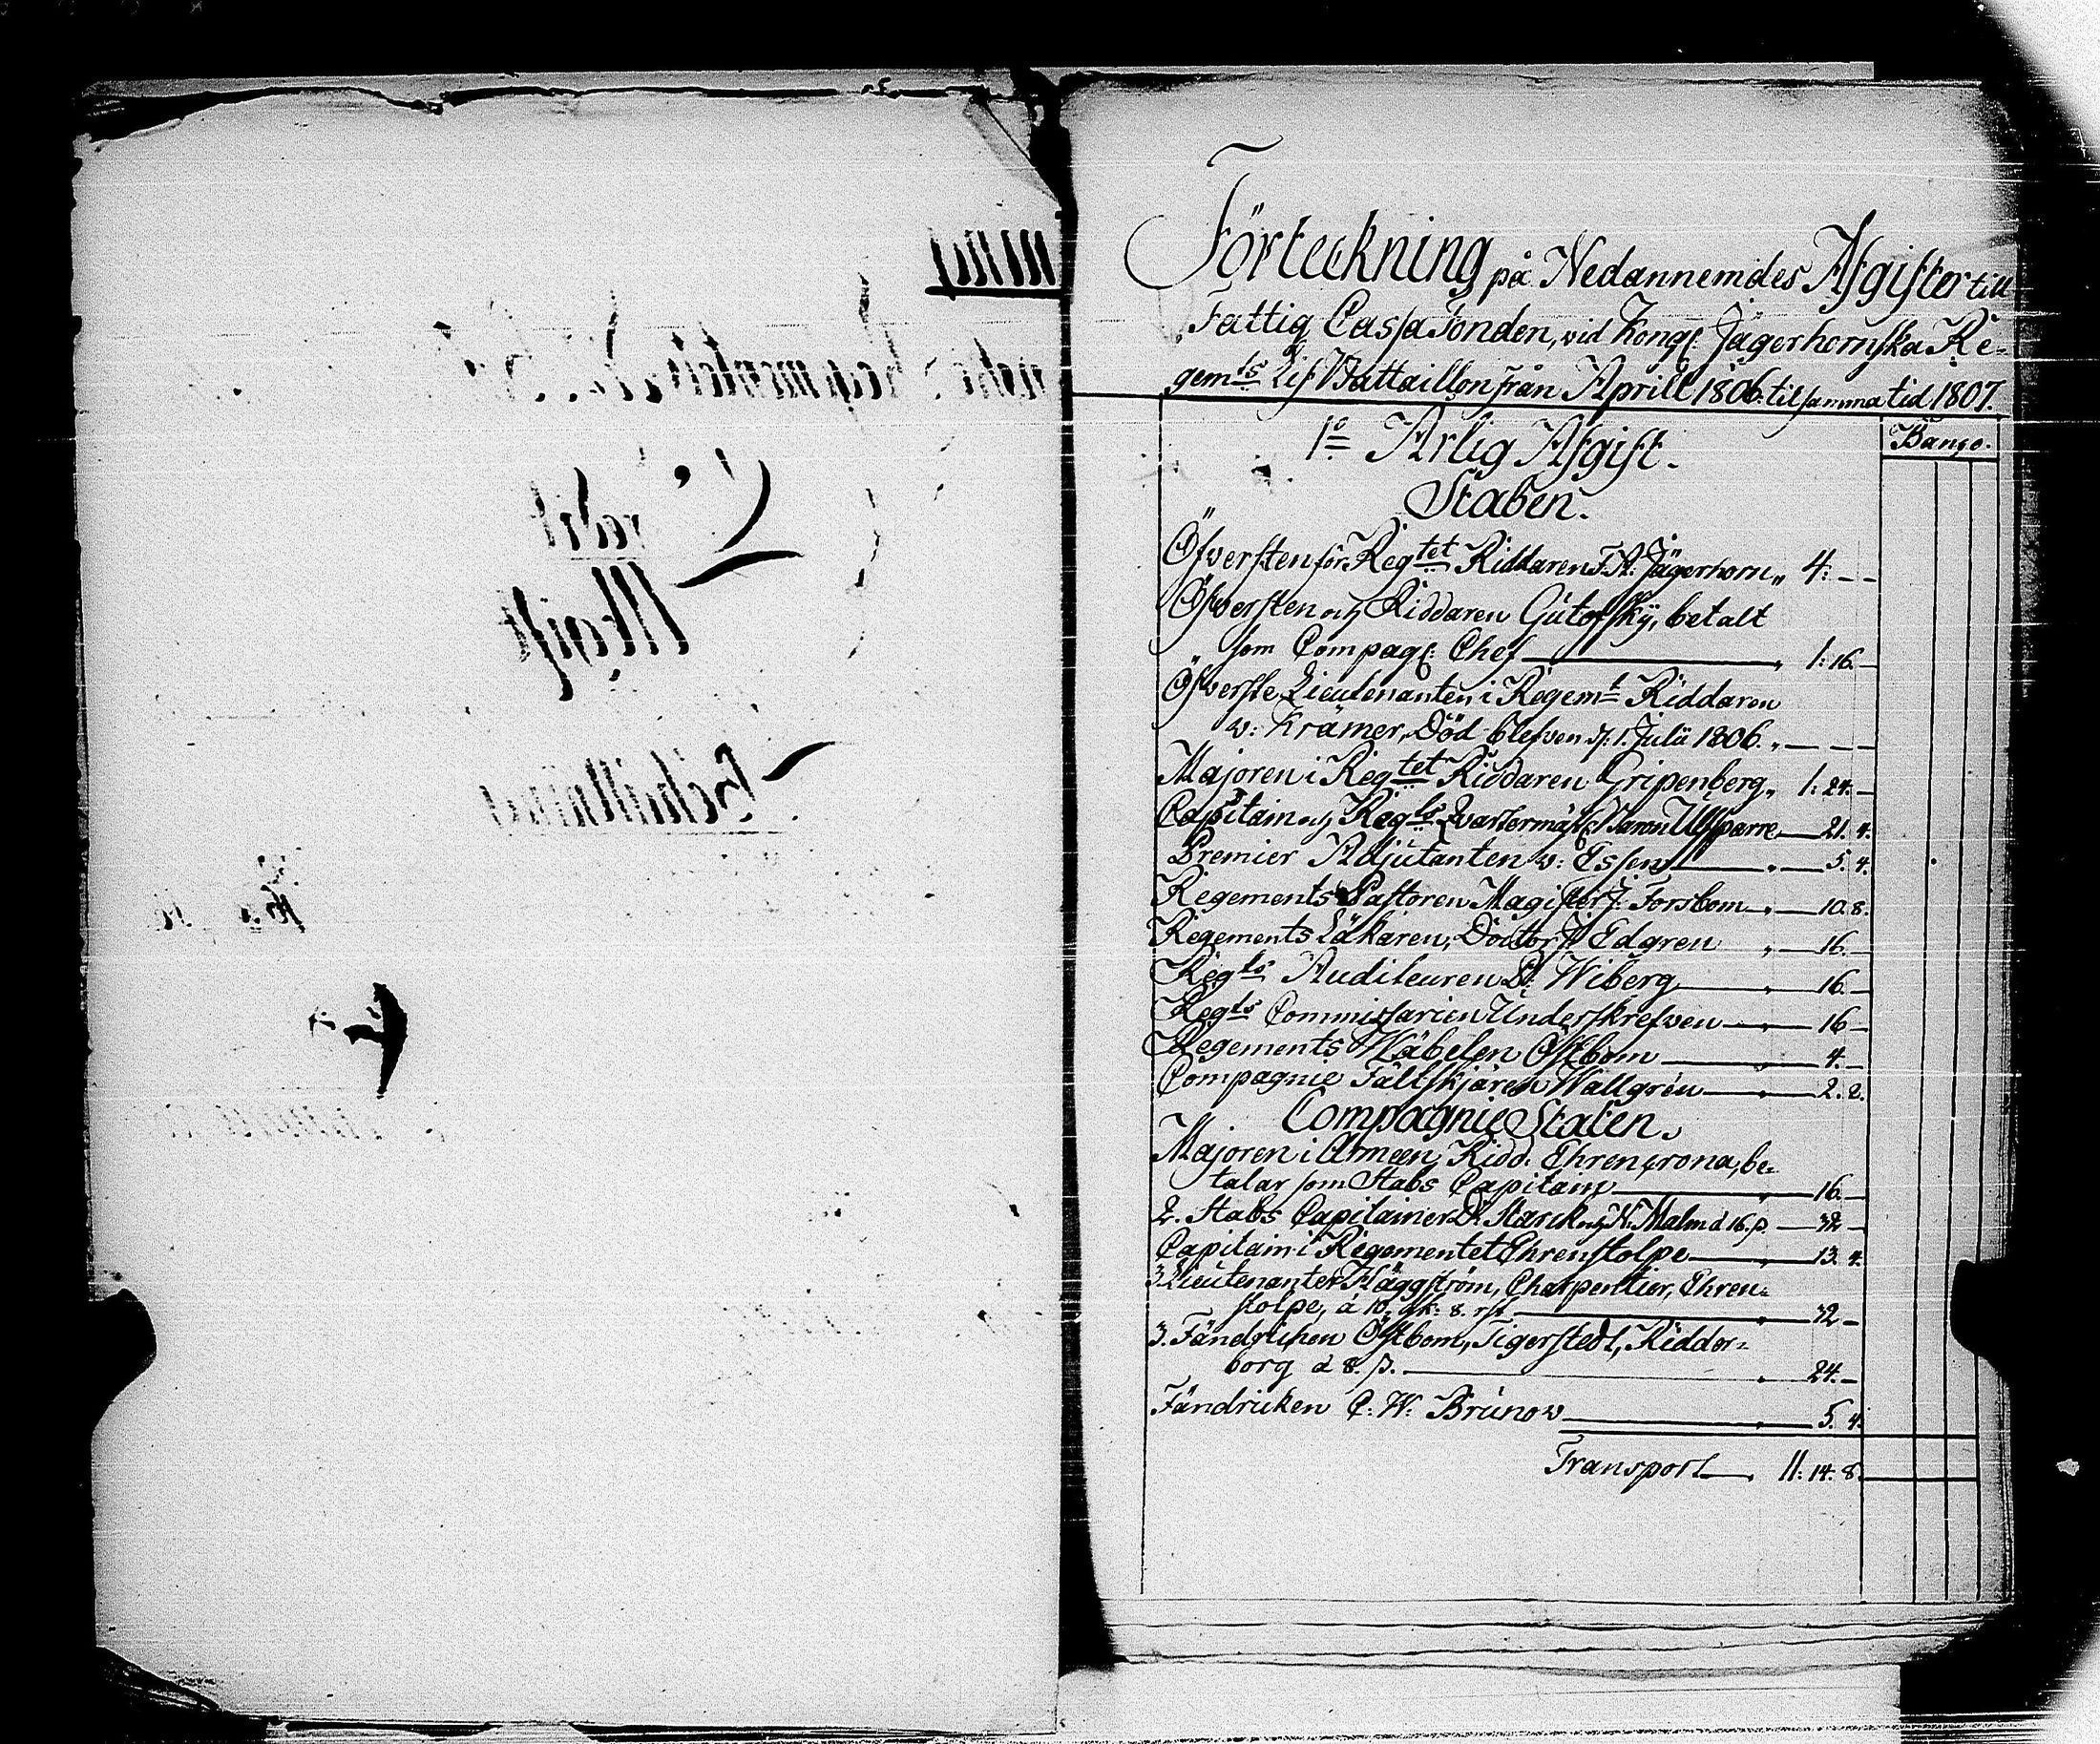 Förteckning på Nedannemdes Afgifter till
Fattig Cassa Fonden, vid Kongl. Jägerhornska Re-
gemts Lif Battaillon från Aprill 1806 til samma tid 1807.
Banco.
1o Årlig Afgift.
Staben.
Öfversten för Regtet Riddaren F. A. Jägerhorn „ 4: – –
Öfversten och Riddaren Gutofsky, betalt
som Compagn: Chef „ 1: 16. –
Öfverste Lieutenanten i Regemt Riddaren
v: Kræmer, Död blefven d: 1. Julii 1806. „ – – –
Majoren i Regtet Riddaren Gripenberg „ 1: 24. –
Capitain och Regts Qvartermäst: Baron Ulfsparre 21. 4.
Premier Adjutanten v: Essen „ 5. 4.
Regements Pastoren Magister J: Forsbom „ 10. 8.
Regements Läkaren, Doctor J: Edgren „ 16. –
Regts Auditeuren Wiberg „ 16. –
Regts Commissarien Underskrefven „ 16 –
Regements Wäbelen Östbom „ 4. –
Compagnie Fältskjären Wallgrén „ 2. 2.
Compagnie Staten.
Majoren i Armeen, Ridd. Ehrencrona, be-
talar som Stabs Capitain „ 16. –
2. Stabs Capitainer D. Starck och N. Malm á 16. ß 32 –
Capitain i Regementet Ehrenstolpe „ 13. 4.
3. Lieutenanter Häggström, Charpentier, Ehren-
stolpe, á 10. sk: 8. rst „ 32 –
3. Fändrichen Östbom, Tigerstedt, Ridder-
borg á 8. ß. „ 24. –
Fändricken C: W: Brunow „ 5. 4.
Transport „ 11: 14. 8.